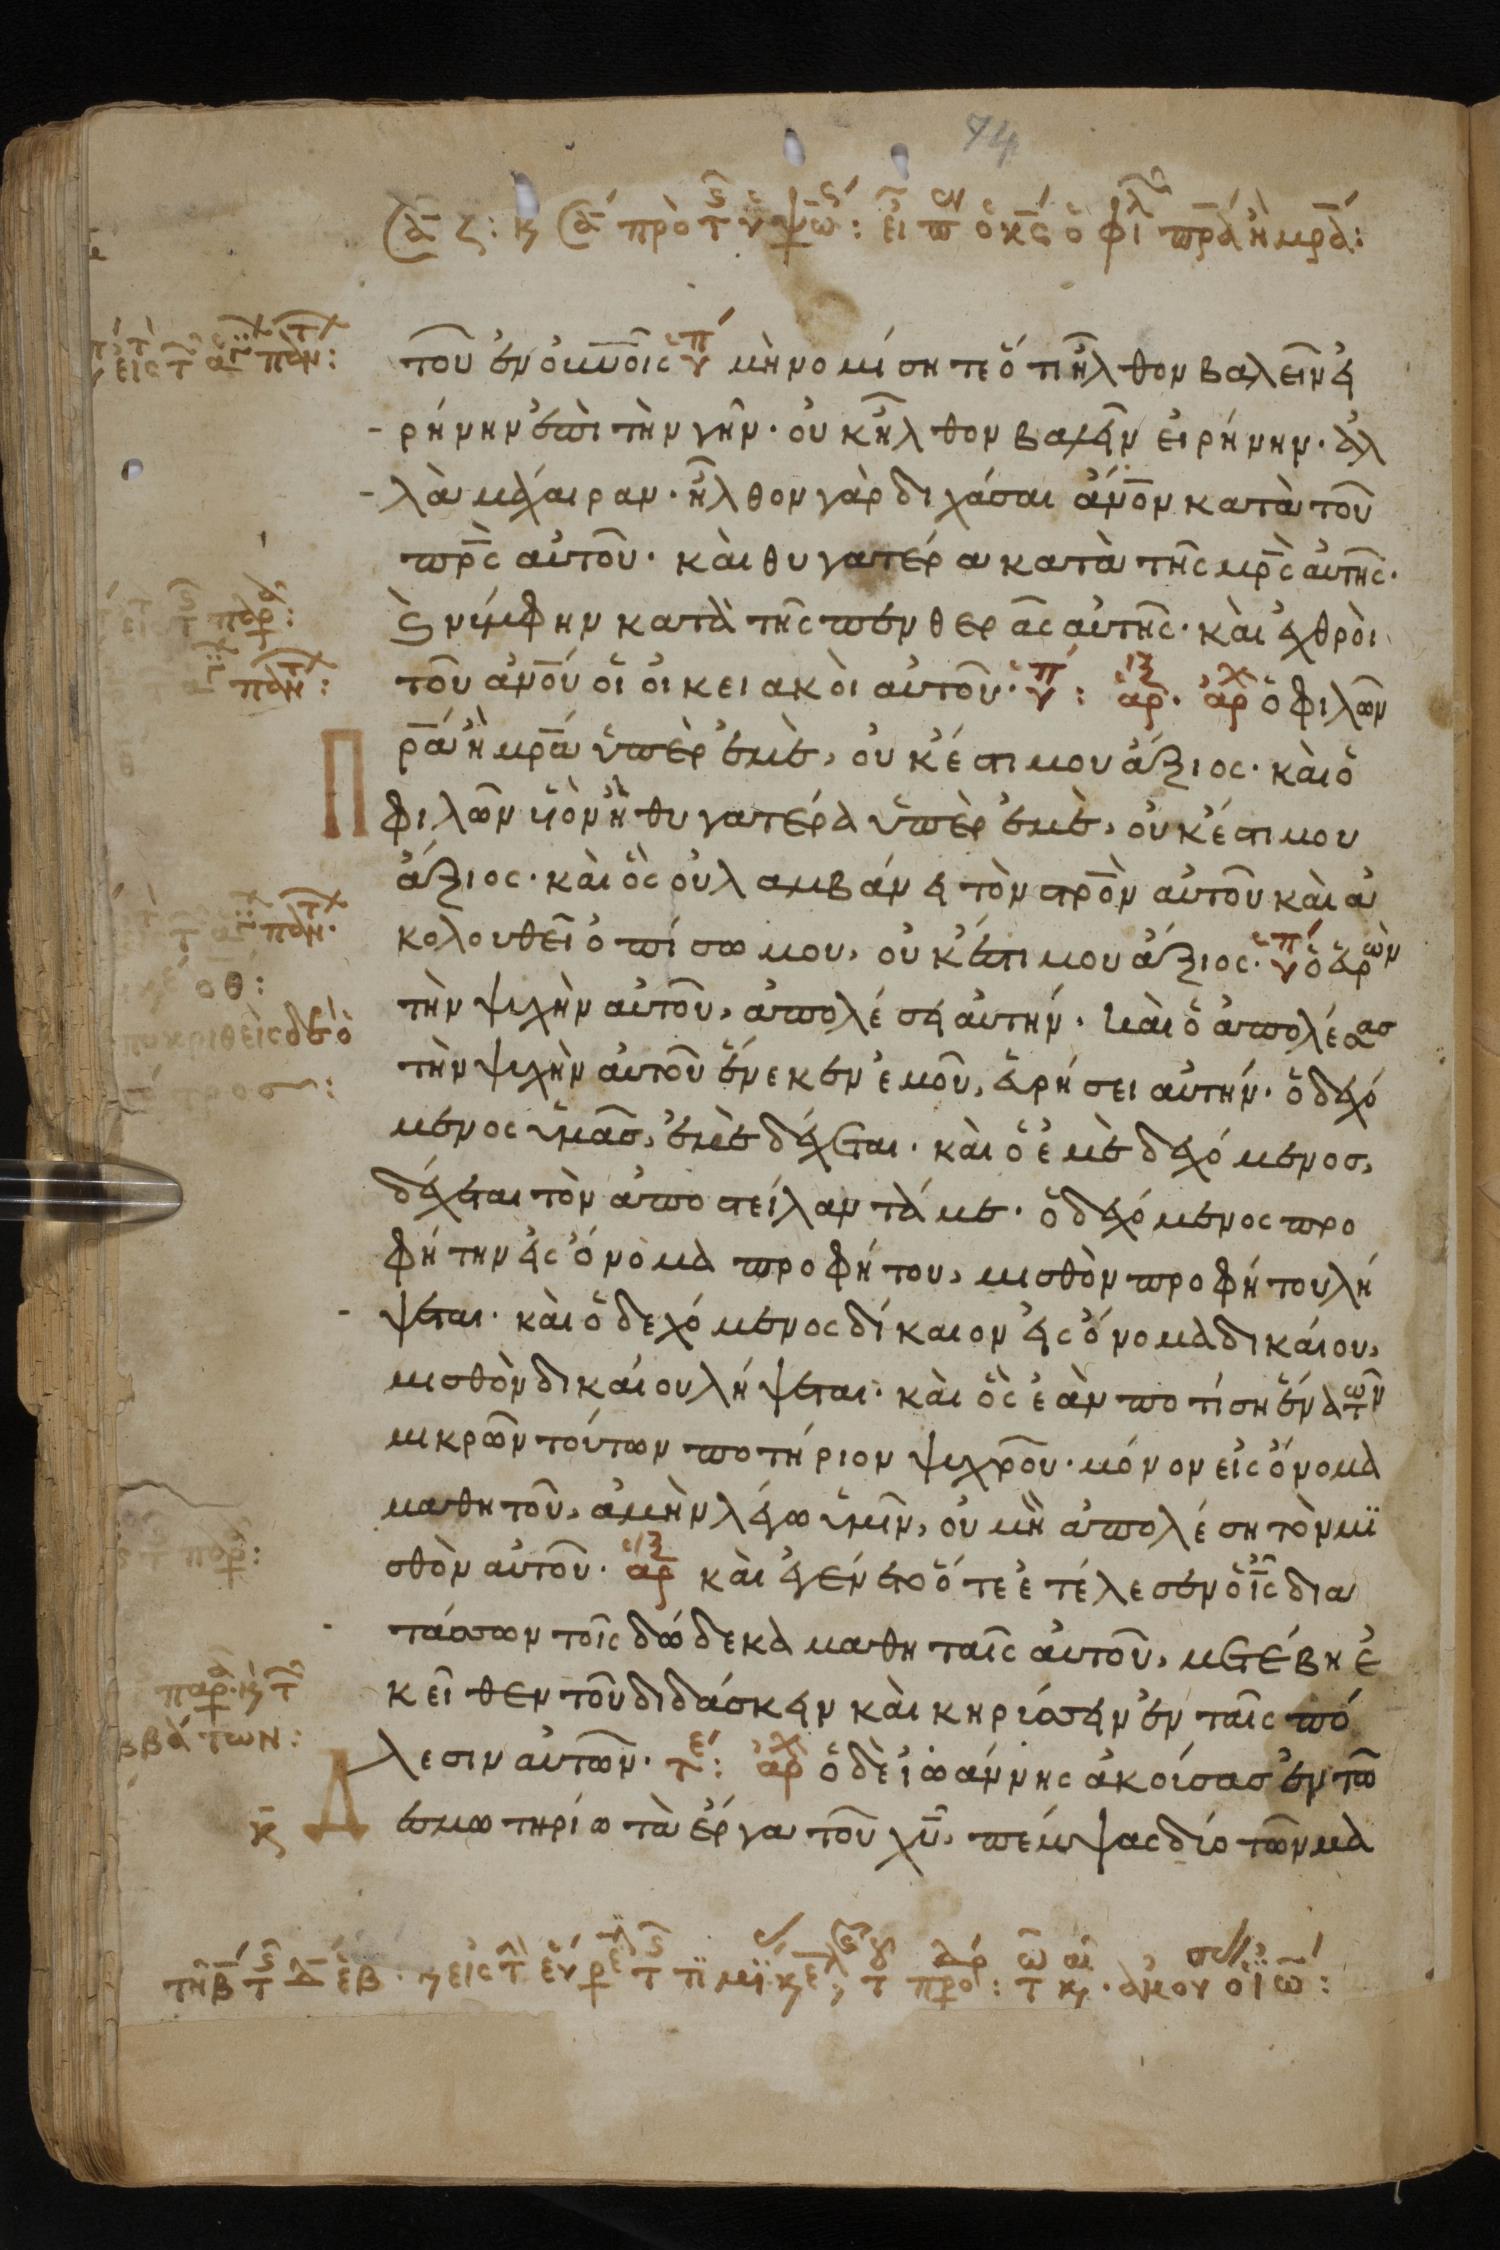 74
σα ζ : κ σα πρὸ τ ὑψώ : εἶπ ὁ κς ὁ φιλ πρα ἢ μρα :
του ἐν οὐνοῖς ὑπ μὴ νομίσητε ὅτι ἦλθον βαλεῖν εἰ
ρήνην ἐπὶ τὴν γῆν · οὐκ ἦλθον βαλεῖν εἰρήνην · ἀλ
λὰ μάχαιραν · ἦλθον γὰρ διχάσαι ἄνον κατὰ τοῦ
πρς αὐτοῦ · καὶ θυγατέρα κατὰ τῆς μρς αὐτῆς ·
ϗ νύμφην κατὰ τῆς πενθερᾶς αὐτῆς · καὶ ἐχθροὶ
τοῦ ἀνου οἱ οἰκειακοὶ αὐτοῦ · ὑπ : αρ · αρχ ὁ φιλῶν
Πρα ἢ μρα ὑπὲρ ἐμὲ, οὐκ ἔστι μου ἄξιος · καὶ ὁ
φιλῶν ὑὸν ἢ θυγατέρα ὑπὲρ ἐμὲ, οὐκ ἔστι μου
ἄξιος · καὶ ὃς οὐ λαμβάνει τὸν στρον αὐτοῦ καὶ ἀ
κολουθεῖ ὀπίσω μου, οὐκ ἔστι μου ἄξιος · ὑπ ὁ εὑρὼν
τὴν ψυχὴν αὐτοῦ, ἀπολέσει αὐτήν · καὶ ὁ ἀπολέσας
τὴν ψυχὴν αὐτοῦ ἕνεκεν ἐμοῦ, εὑρήσει αὐτήν · ὁ δεχό
μενος ὑμᾶς, ἐμὲ δέχεται · καὶ ὁ ἐμὲ δεχόμενος,
δέχεται τὸν ἀποστείλαντά με · ὁ δεχόμενος προ
φήτην εἰς ὄνομα προφήτου, μισθὸν προφήτου λή
ψεται · καὶ ὁ δεχόμενος δίκαιον εἰς ὄνομα δικαίου,
μισθὸν δικαίου λήψεται · καὶ ὃς ἐὰν ποτίση ἕνα τῶν
μικρῶν τούτων ποτήριον ψυχροῦ · μόνον εἰς ὄνομα
μαθητοῦ, ἀμὴν λέγω ὑμῖν, οὐ μὴ ἀπολέση τὸν μι
σθὸν αὐτοῦ · αρ καὶ ἐγένετο ὅτε ἐτέλεσεν ὁ ις δια
τάσσων τοῖς δώδεκα μαθηταῖς αὐτοῦ, μετέβη ἐ
κεῖθεν τοῦ διδάσκειν καὶ κηρύσσειν ἐν ταῖς πό
λεσιν αὐτῶν · τε : αρχ ὁ δὲ ἰωάννης ἀκούσας ἐν τῶ
Δεσμωτηρίω τὰ ἔργα τοῦ χυ, πέμψας δύο τῶν μα
εἰς τ πὰν :
παρ :
πὰν :
πὰν ·
οθ :
ποκριθεὶς δὲ ὁ
τρος :
τ παρ :
παρ · κ τ
ββάτων :
κ
τῆ β τ δ ἑβ ·